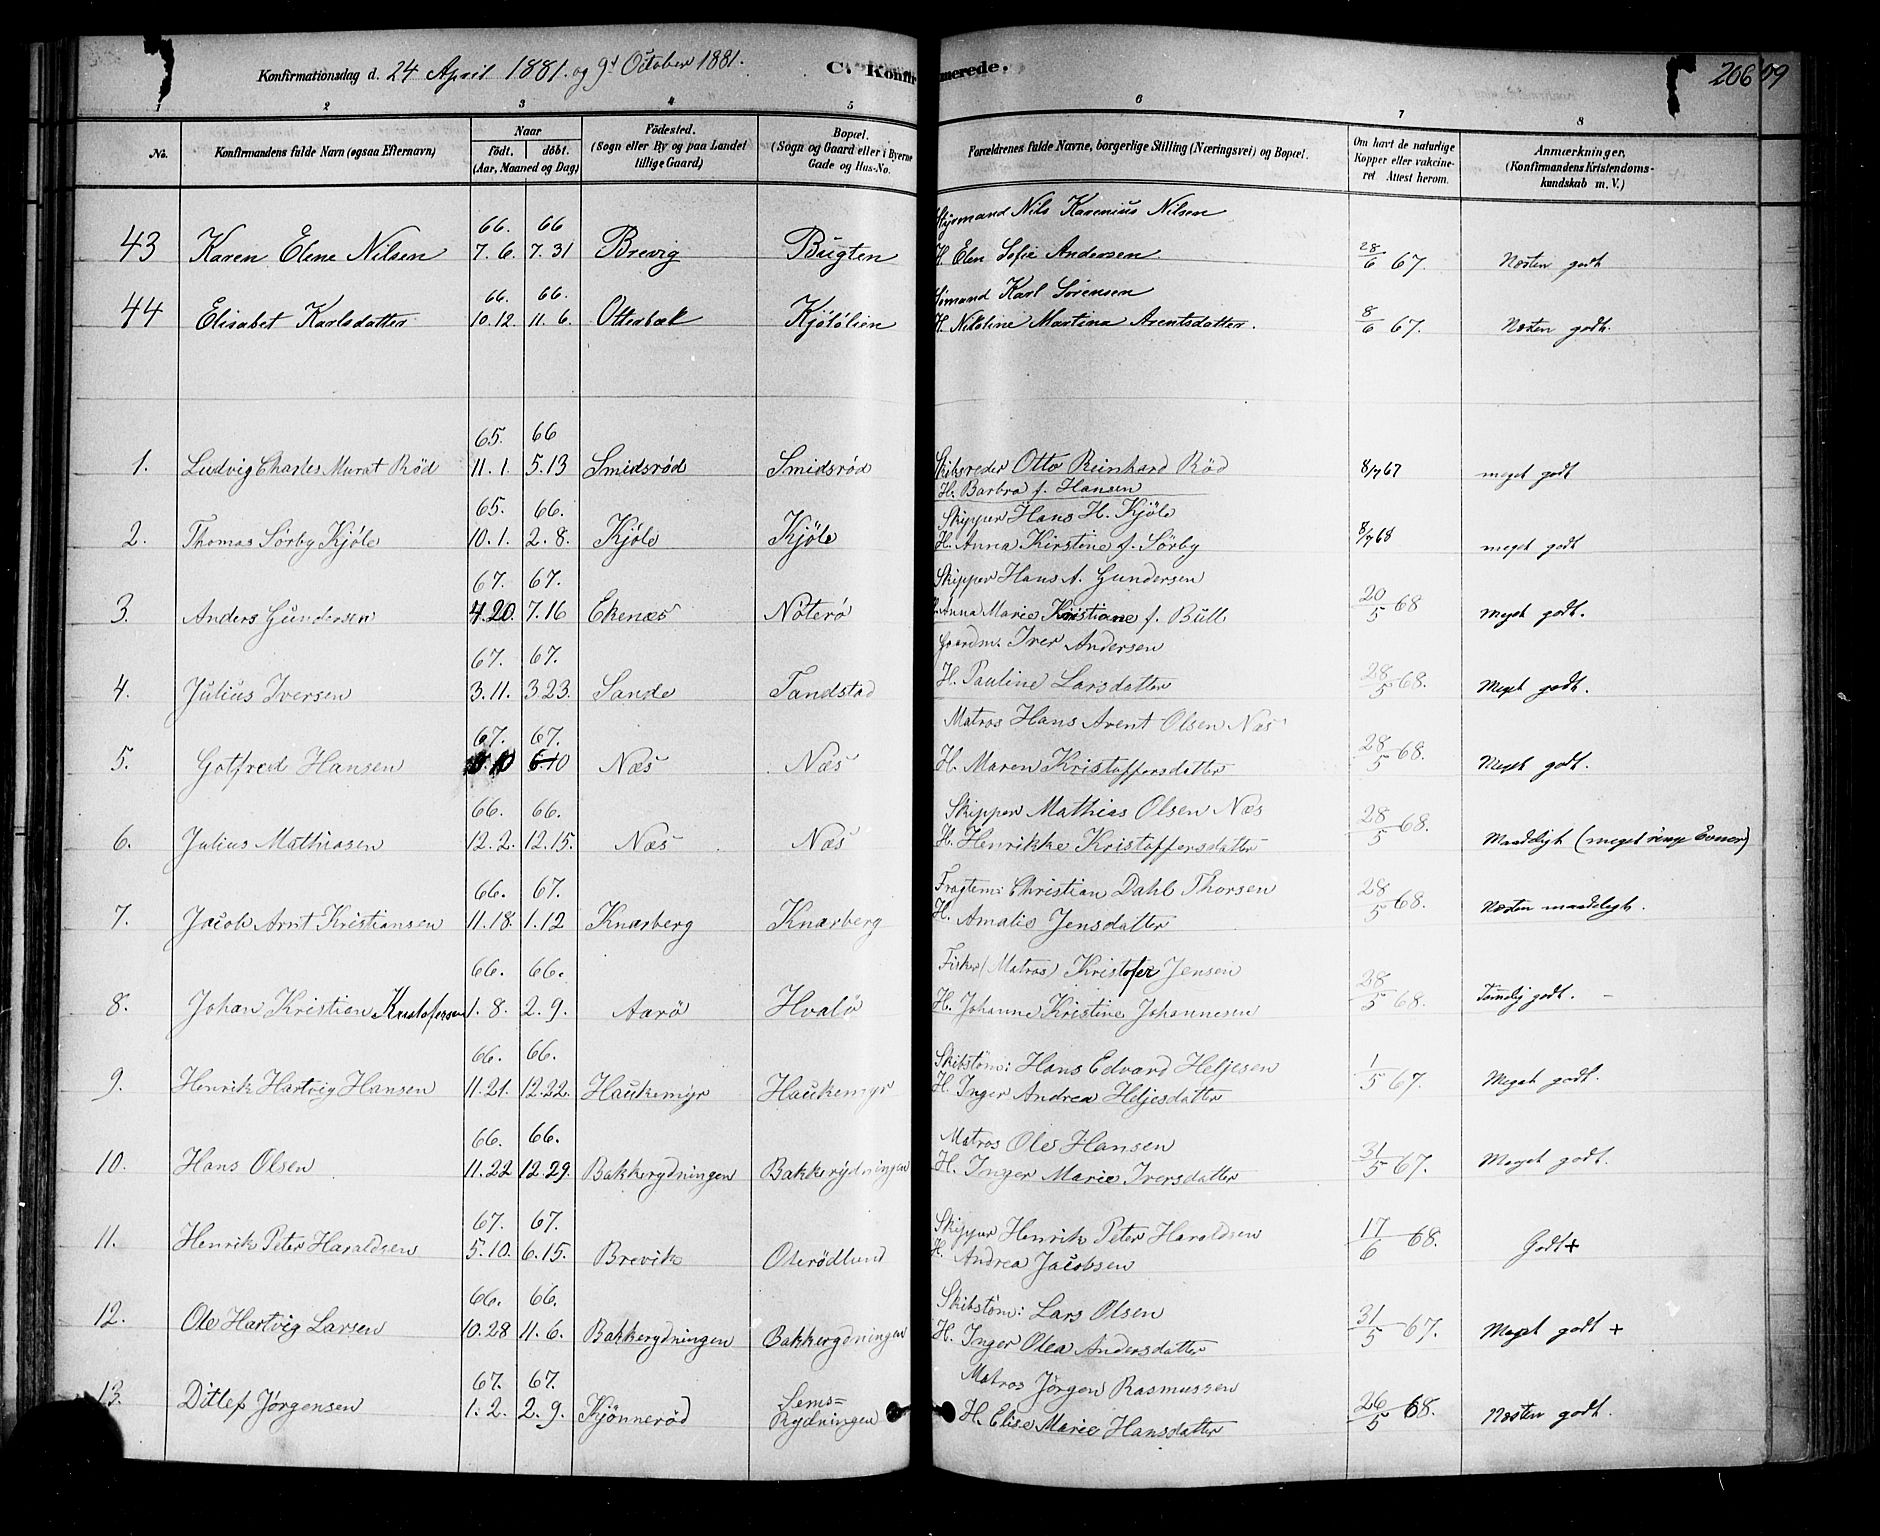 Konfirmationsdag d. 24 April 1881. og 9d October 1881.
C. Konfirmerede.
206
09
1 2 3 4 5 6 7 8
No.
Konfirmandens fulde Navn (ogsaa Efternavn)
Naar
födt. döbt.
(Aar, Maaned og Dag)
Födested.
(Sogn eller By og paa Landet
tillige Gaard)
Bopæl.
(Sogn og Gaard eller i Byerne
Gade og Hus-No.
Forældrenes fulde Navne, borgerlige Stilling (Næringsvei) og Bopæl.
Om havt de naturlige
Kopper eller vakcine-
ret Attest herom.
Anmærkninger,
(Konfirmandens Kristendoms-
kundskab m. V.)
66. 66 Nils Karenius Nilsen
43 Karen Elene Nilsen 7. 6. 7. 31 Brevig Bugten H. Elen Sofie Andersen 28/6 67. Næsten godt
66. 66. Sömand Karl Sörensen
44 Elisabet Karlsdatter 10. 12. 11. 6. Otterbæk Kjölölien H. Niloline Martina Arentsdatter. 8/6 67. Næsten godt.
65. 66
1. Ludvig Charles Murat Röd 11. 1. 5. 13 Smidsröd Smidsröd Skibsreder Otto Reinhard Röd 8/7 67 meget godt
H. Barbra f. Hansen
65. 66. Skipper Hans H. Kjöle
2. Thomas Sörby Kjöle 10. 1. 2. 8. Kjöle Kjöle H. Anna Kirstine f. Sörby 8/7 68 meget godt
67. 67. Skipper Hans A. Gundersen
3. Anders Gundersen 4. 20. 7. 16 Ekenæs Nöterö H. Anna Marie Kristiane f. Bull 20/5 68 Meget godt.
67. 67. Gaardm. Iver Andersen
4. Julius Iversen 3. 11. 3 23. Sande Tandstad H. Pauline Larsdatter 28/5 68. Meget godt.
67. 67. Matros Hans Arent Olsen Næs
5. Gotfred Hansen 10 6. 10 Næs Næs H. Maren Kristoffersdatter 28/5 68. Meget godt.
66. 66. Skipper Mathias Olsen Næs
6. Julius Mathiasen 12. 2. 12. 15. Næs Næs H. Henrikke Kristoffersdatter 28/5 68. Maadeligt (meget ringe Evner)
66. 67. Fragtem: Christian Dahl Thorsen
7. Jacob Arnt Kristiansen 11. 18. 1. 12 Knarberg Knarberg H. Amalie Jensdatter 28/5 68. Næsten maadeligt.
66. 66. Fisker (Matros) Kristofer Jensen
8. Johan Kristian Kristofersen 1. 8. 2. 9. Aarö Hvalö H. Johanne Kristine Johannesen 28/5 68. Temelig godt. –
66. 66. Skibstöm: Hans Edvard Heljesen
9. Henrik Hartvig Hansen 11. 21. 12. 22. Haukemyr Haukemyr H. Inger Andrea Heljesdatter 1/5 67. Meget godt.
66. 66. Matros Ole Hansen
10. Hans Olsen 11. 22 12. 29. Bakkerydningen Bakkerydningen H. Inger Marie Iversdatter 31/5 67. Meget godt.
67. 67. Skipper Henrik Peter Haraldsen
11. Henrik Peter Haraldsen 5. 10. 6. 15. Brevik Oterödlund H. Andrea Jacobsen 17/6 68. Godt +
66. 66. Skibstöm: Lars Olsen
12. Ole Hartvig Larsen 10. 28 11. 6. Bakkerydningen Bakkerydningen H. Inger Olea Andersdatter 31/5 67. Meget godt +
67. 67. Matros Jörgen Rasmussen
13. Ditlef Jörgensen 1. 2. 2. 9. Kjönneröd Sems=Rydningen H. Elise Marie Hansdatter 26/5 68. Næsten godt.